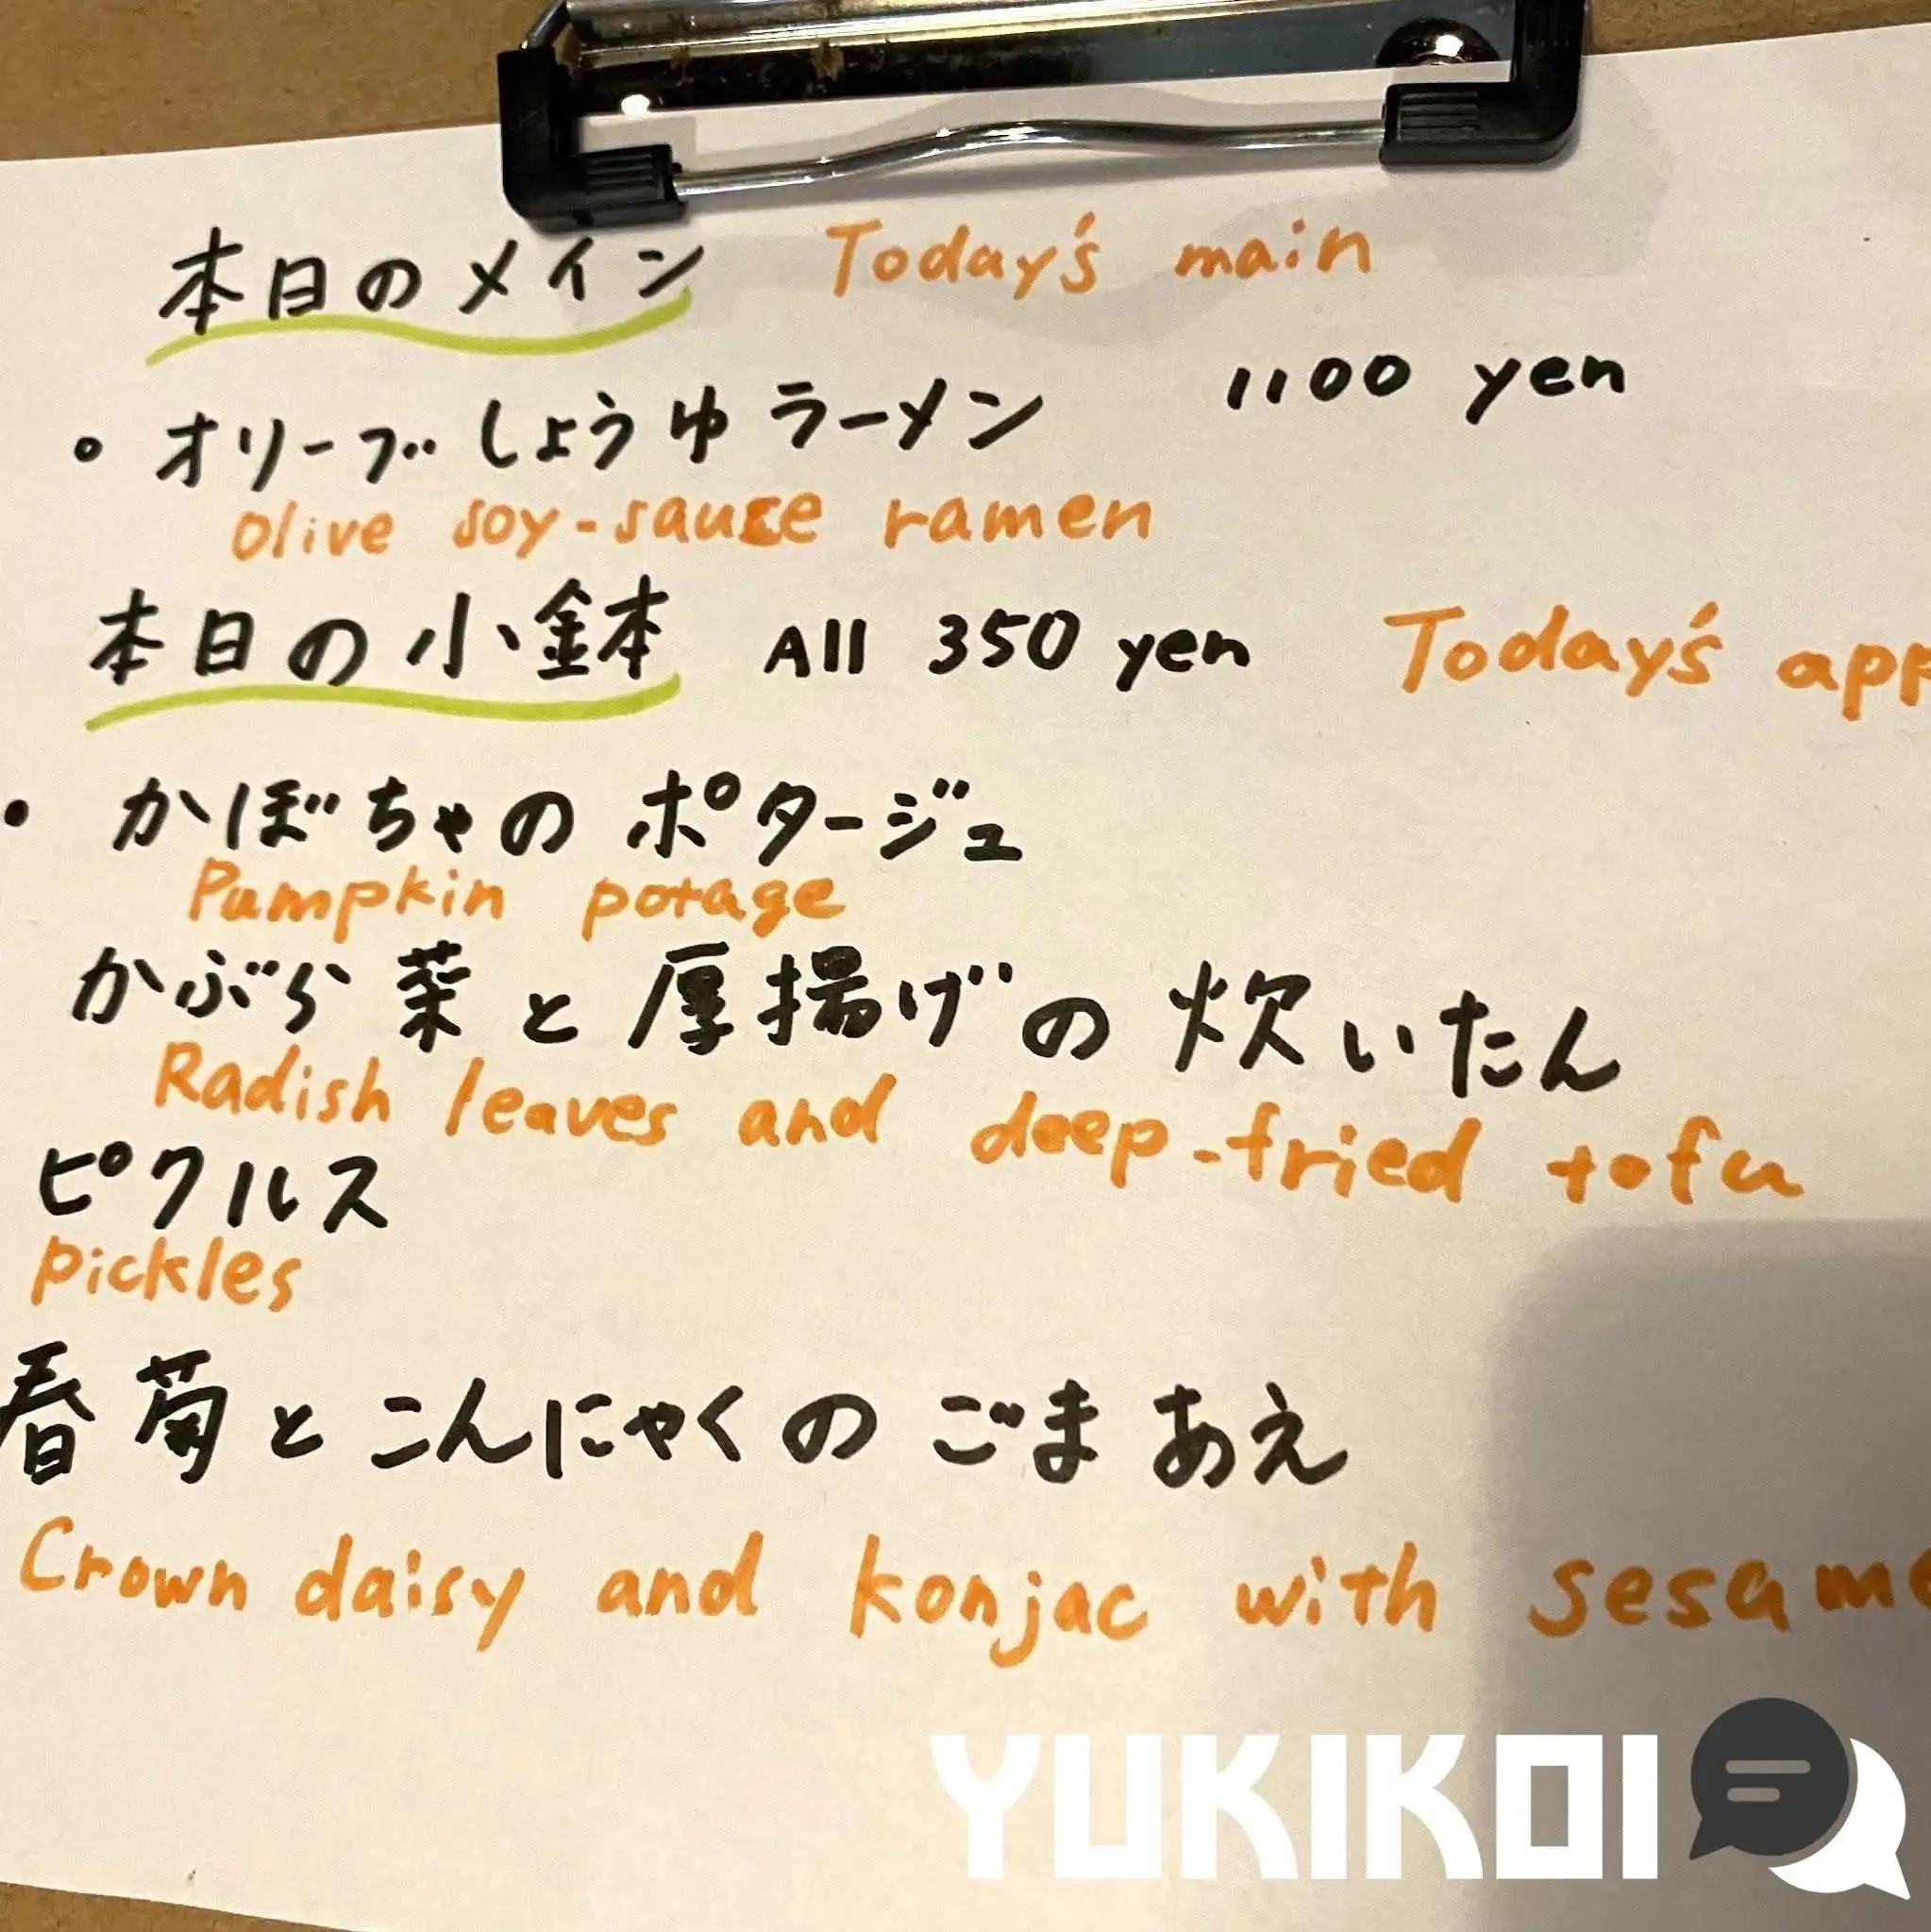 本日のメイン Today's main
・オリーブしょうゆラーメン 1100 yen
Olive soy-sauce ramen
本日の小鉢 All 350 yen Today's
・かぼちゃのポタージュ
Pumpkin potage
かぶら菜と厚揚げの炊いたん
Radish leaves and deep-fried tofu
ピクルス
pickles
春菊とこんにゃくのごまあえ
Crown daisy and konjac with sesame
YUKIKOI